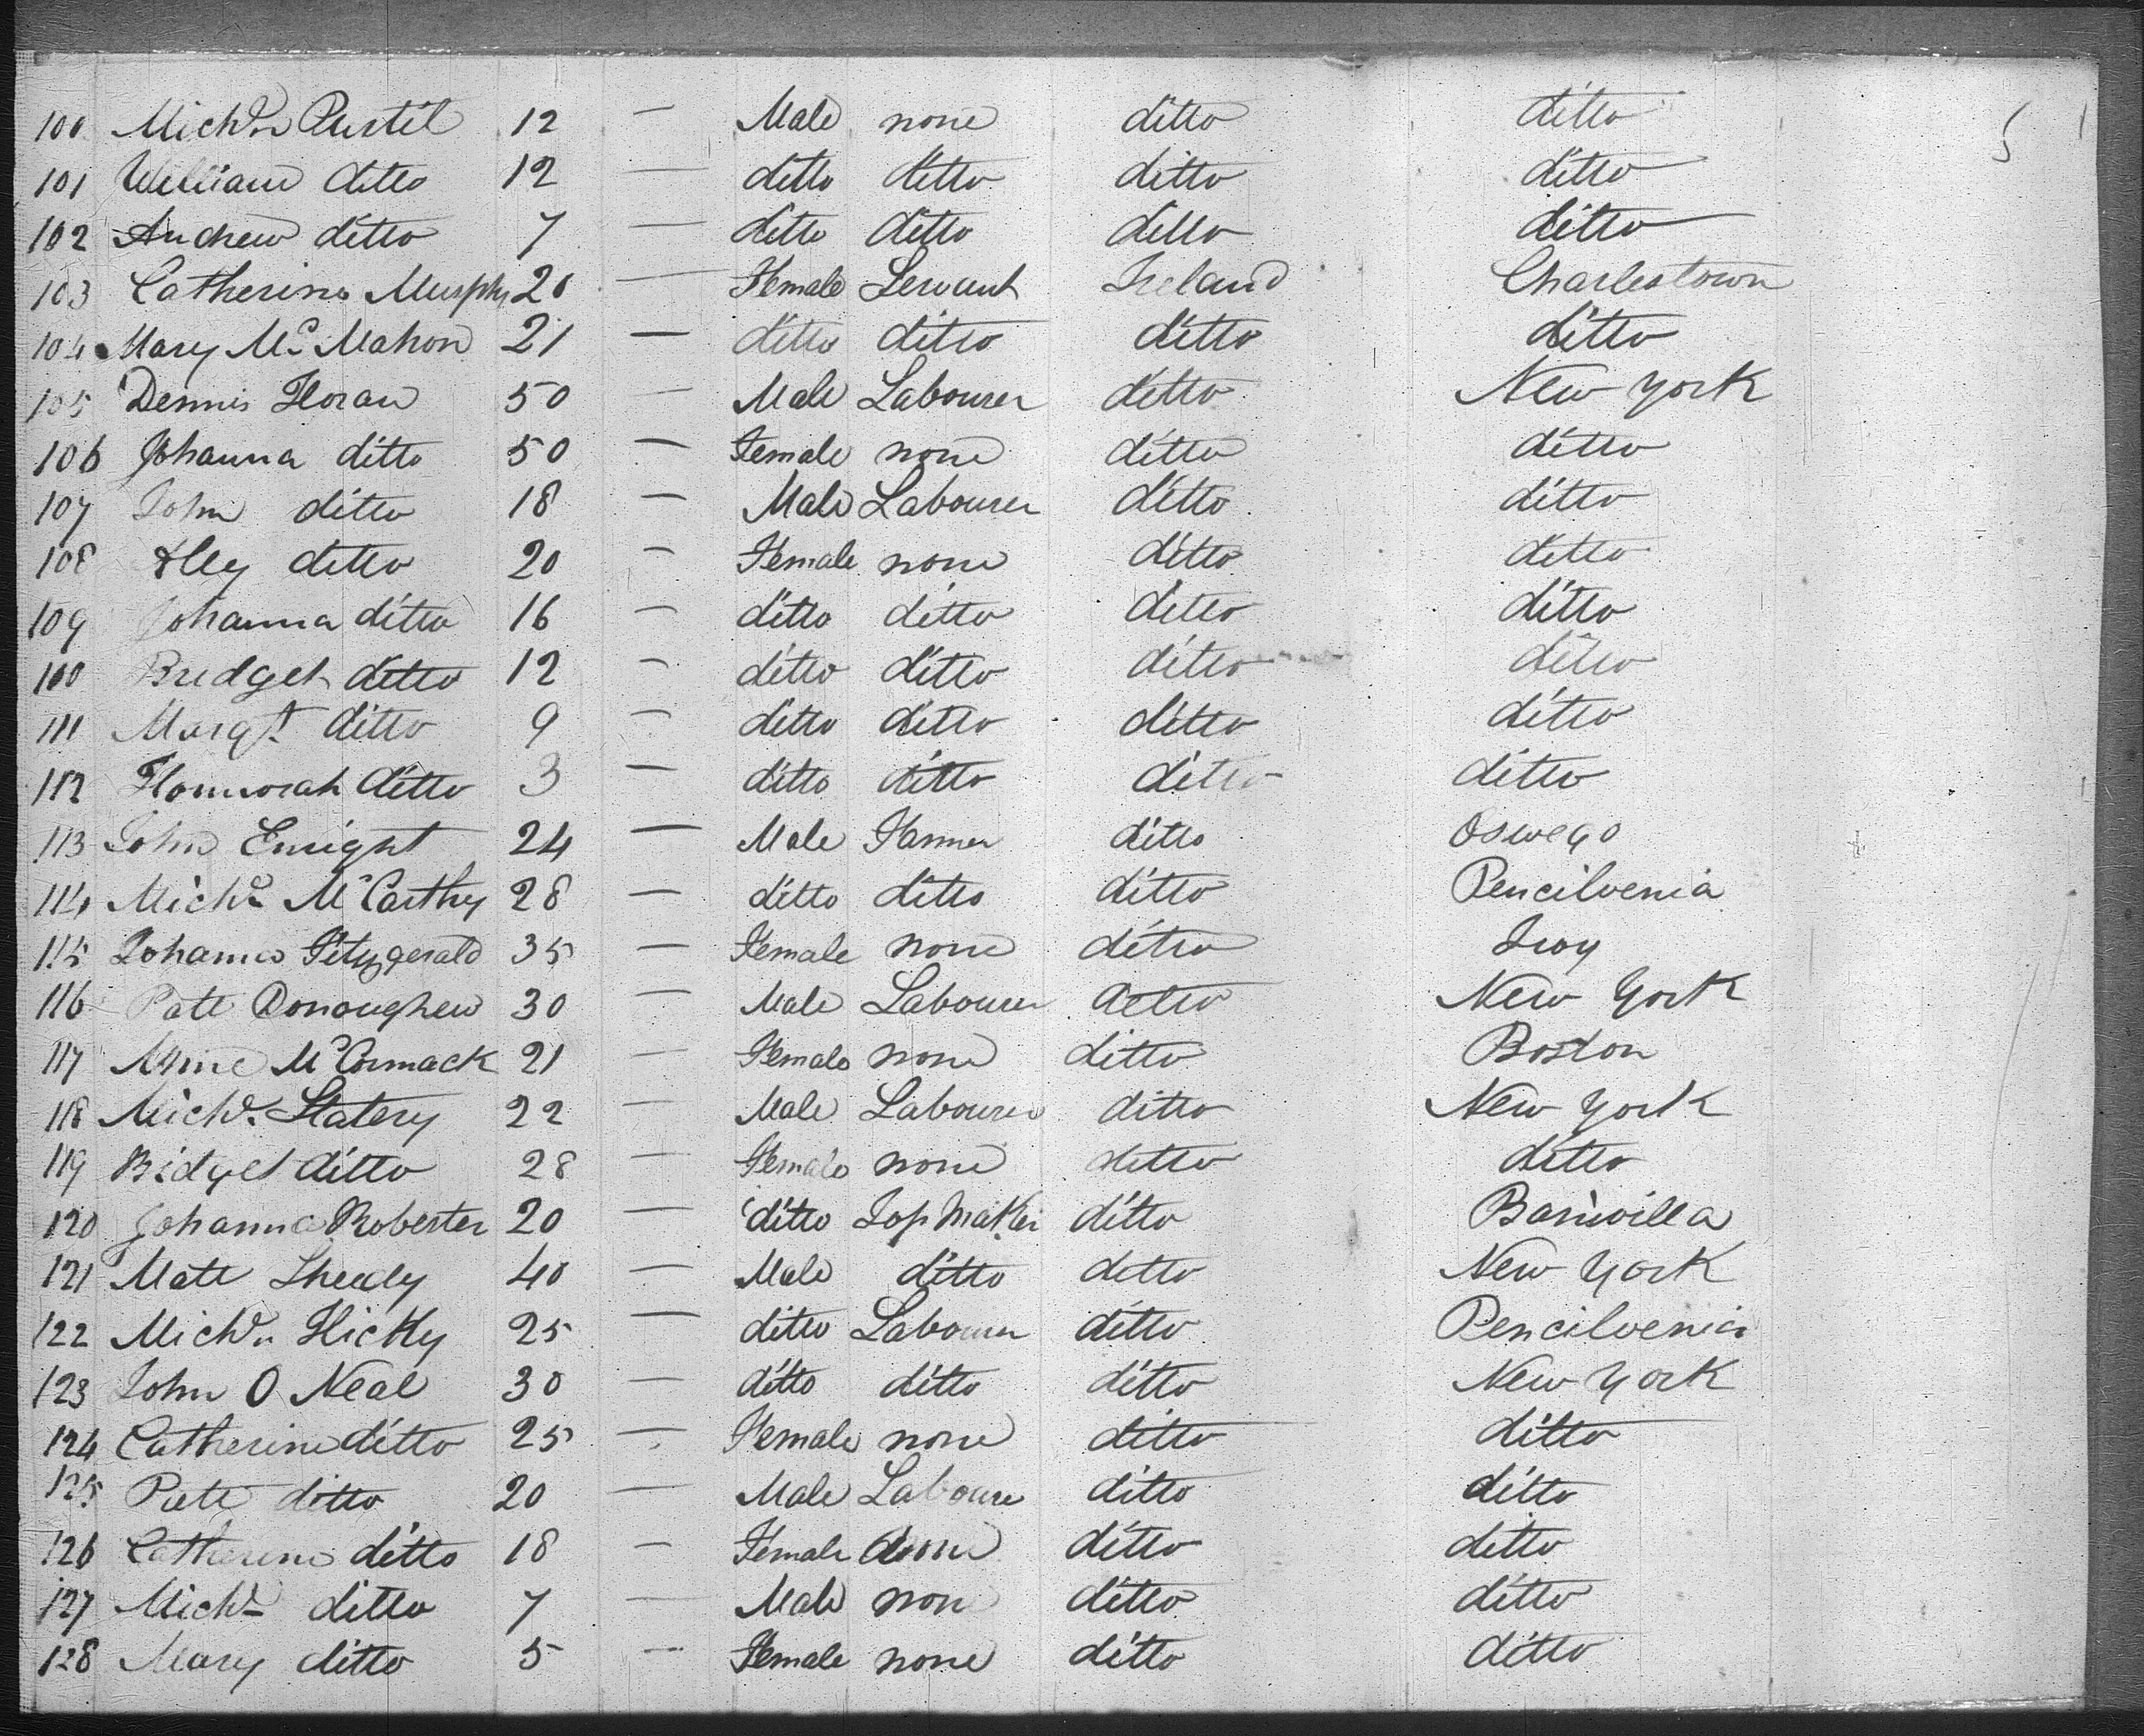 100 Michl. Purtil 12 — Male none ditto ditto
101 William ditto 12 — ditto ditto ditto ditto
102 Andrew ditto 7 — ditto ditto ditto ditto
103 Catherine Murphy 20 — Female Servant Ireland Charlestown
104 Mary Mc Mahon 21 — ditto ditto ditto ditto
105 Dennis Horan 50 — Male Labourer ditto New York
106 Johanna ditto 50 — Female none ditto ditto
107 John ditto 18 — Male Labourer ditto ditto
108 ditto 20 — Female none ditto ditto
109 Johanna ditto 16 — ditto ditto ditto ditto
110 Bridget ditto 12 — ditto ditto ditto ditto
111 Margt. ditto 9 — ditto ditto ditto ditto
112 Honnorah ditto 3 — ditto ditto ditto ditto
113 John Enright 24 — Male Farmer ditto Oswego
114 Michl. McCarthy 28 — ditto ditto ditto Pencilvenia
115 Johanna Fitzgerald 35 — Female none ditto Troy
116 Patt Donoughew 30 — Male Labourer ditto New York
117 Anne McCormack 21 — Female none ditto Boston
118 Michl. Slatery 22 — Male Labourer ditto New York
119 Bidget ditto 28 — Female none ditto ditto
120 Johanna Roberter 20 — ditto ditto
121 Matt Sheedy 40 — Male ditto ditto New York
122 Michl. Hickky 25 — ditto Labourer ditto Pencilvenia
123 John O Neal 30 — ditto ditto ditto New York
124 Catherine ditto 25 — Female none ditto ditto
125 Patt ditto 20 — Male Laboure ditto ditto
126 Catherine ditto 18 — Female none ditto ditto
127 Michl. ditto 7 — Male none ditto ditto
128 Mary ditto 5 — Female none ditto ditto